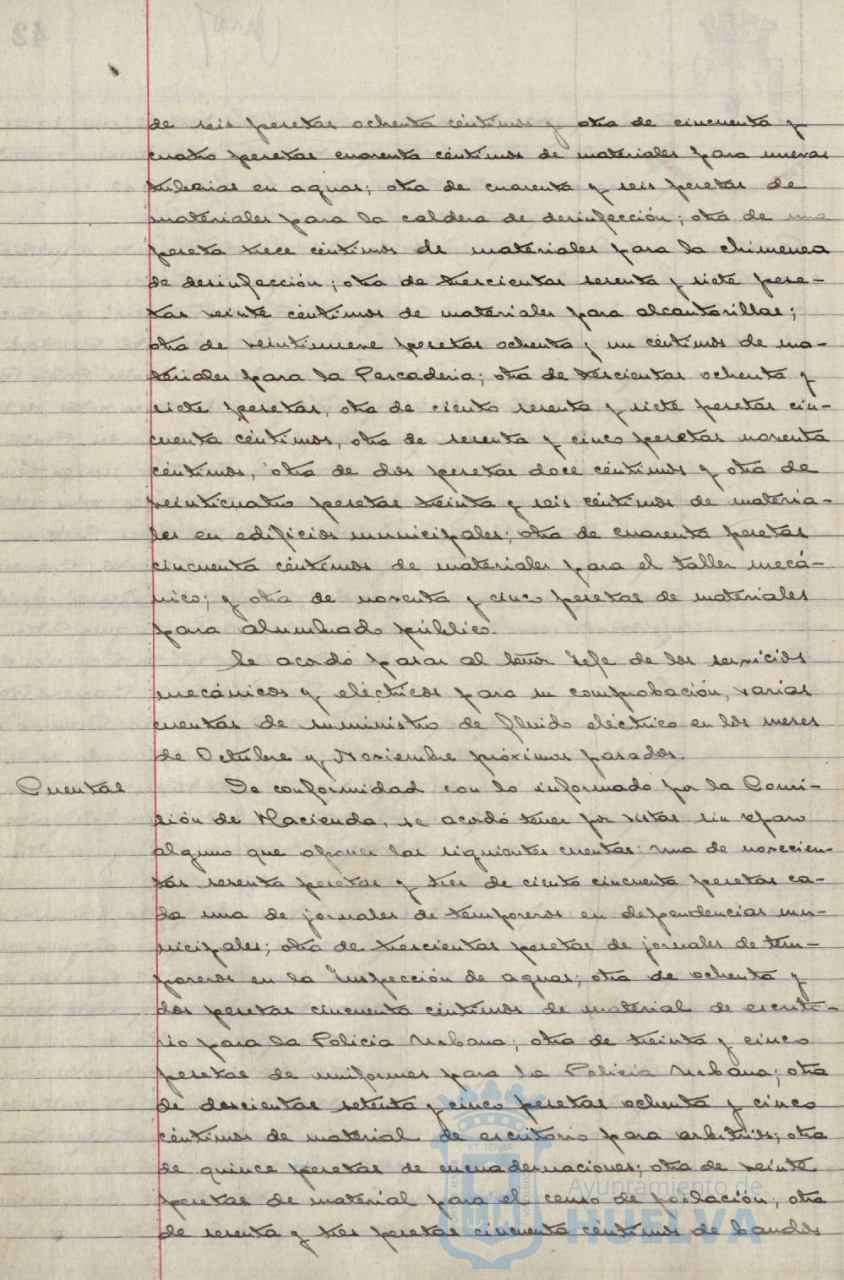 de seis pesetas ochenta céntimos y otra de cincuenta y
cuatro pesetas cuarenta céntimos de materiales para nuevas
tuberias en aguas; otra de cuarenta y seis pesetas de
materiales para la caldera de desinfección; otra de una
peseta trece céntimos de materiales para la chimenea
de desinfección; otra de trescientas sesenta y siete pese-
tas veinte céntimos de materiales para alcantarillas;
otra de veintinueve pesetas ochenta y un céntimos de ma-
teriales para la Pescaderia; otra de trescientas ochenta y
siete pesetas, otra de ciento sesenta y siete pesetas cin-
cuenta céntimos, otra de sesenta y cinco pesetas noventa
céntimos, otra de dos pesetas doce céntimos y otra de
veinticuatro pesetas treinta y seis céntimos de materia-
les en edificios municipales; otra de cuarenta pesetas
cincuenta céntimos de materiales para el taller mecá-
nico; y otra de noventa y cinco pesetas de materiales
para alumbrado público.
Se acordó pasar al señor Jefe de los servicios
mecánicos y eléctricos para su comprobación, varias
cuentas de suministro de fluido eléctrico en los meses
de Octubre y Noviembre próximos pasados.
Cuentas
De conformidad con lo informado por la Comi-
sión de Hacienda, se acordó tener por vistas sin reparo
alguno que oponer las siguientes cuentas: una de novecien-
tas sesenta pesetas y tres de ciento cincuenta pesetas ca-
da una de jornales de temporeros en dependencias mu-
nicipales; otra de trescientas pesetas de jornales de tem-
poreros en la Inspección de aguas; otra de ochenta y
dos pesetas cincuenta céntimos de material de escrito-
rio para la Policia Urbana; otra de treinta y cinco
pesetas de uniformes para la Policia Urbana; otra
de doscientas setenta y cinco pesetas ochenta y cinco
céntimos de material de escritorio para arbitrios; otra
de quince pesetas de encuadernaciones; otra de veinte
pesetas de material para el censo de población; otra
de sesenta y tres pesetas cincuenta céntimos de bandos
Ayuntamiento de
HUELVA